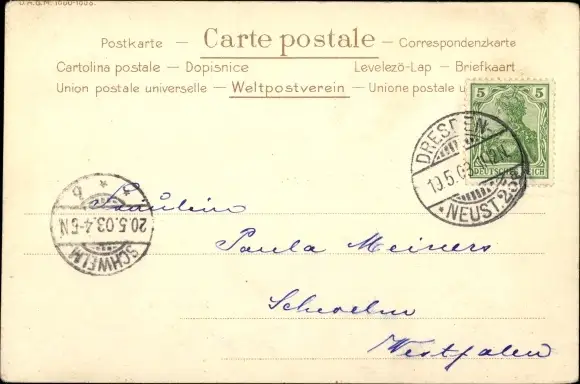 Postkarte — Carte postale — Correspondenzkarte
Cartolina postale — Dopisnice Levelezö-Lap — Briefkaart
Union postale universelle — Weltpostverein — Unione postale u
5 5
DEUTSCHES REICH
DRESDEN-
19.5.03.
NEUST.
Fräulein
Paula Meiners
Schwelm
Westfalen
SCHWELM
20.5.03.4-5N